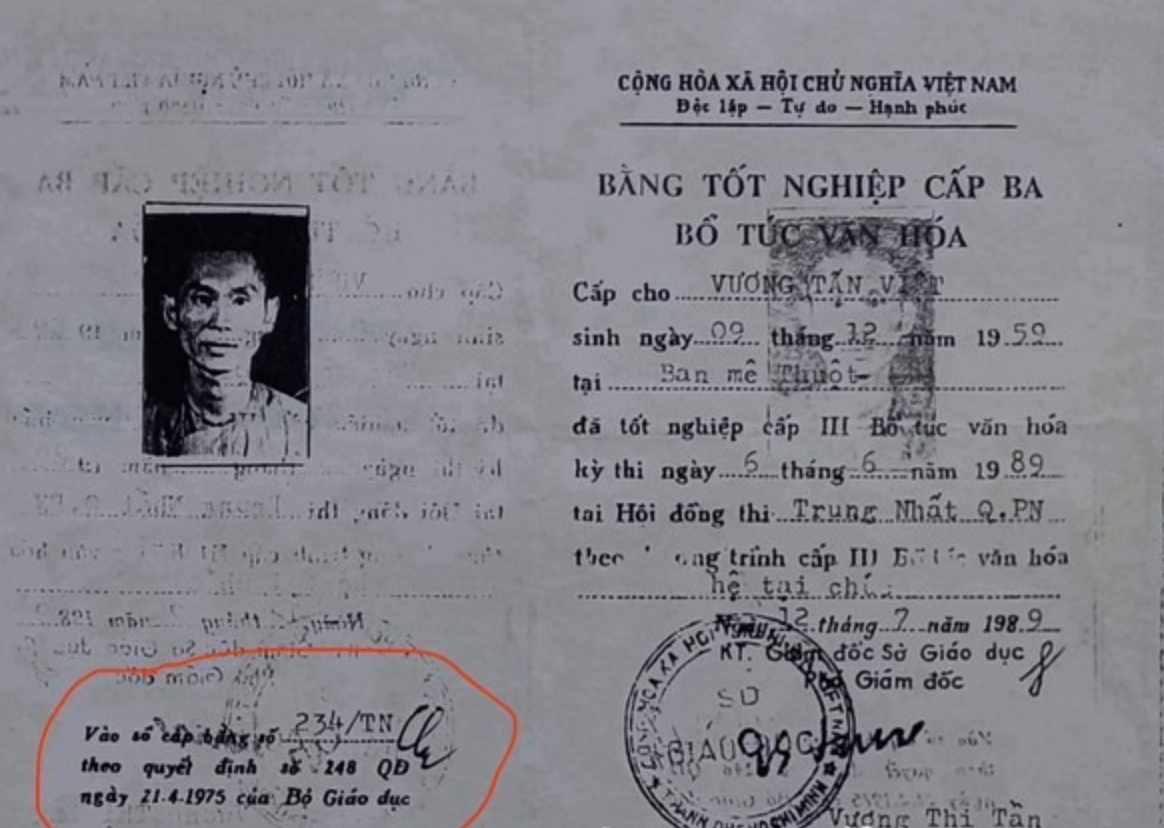 CỘNG HÒA XÃ HỘI CHỦ NGHĨA VIỆT NAM
Độc lập — Tự do — Hạnh phúc
BẰNG TỐT NGHIỆP CẤP BA
BỔ TÚC VĂN HÓA
Cấp cho VƯƠNG TẤN VIỆT
sinh ngày 09 tháng 12 năm 1959
tại Ban mê Thuột
đã tốt nghiệp cấp III Bổ túc văn hóa
kỳ thi ngày 6 tháng 6 năm 1989
tại Hội đồng thi Trung Nhất Q.PN
theo trình cấp III văn hóa
hệ tại
12 tháng 7 năm 1989
KT. Giám đốc Sở Giáo dục
Phó Giám đốc
SỞ
GIÁO DỤC
Vương Thị Tân
Vào sổ cấp bằng số 234/TN
theo quyết định số 248 QĐ
ngày 21.4.1975 của Bộ Giáo dục